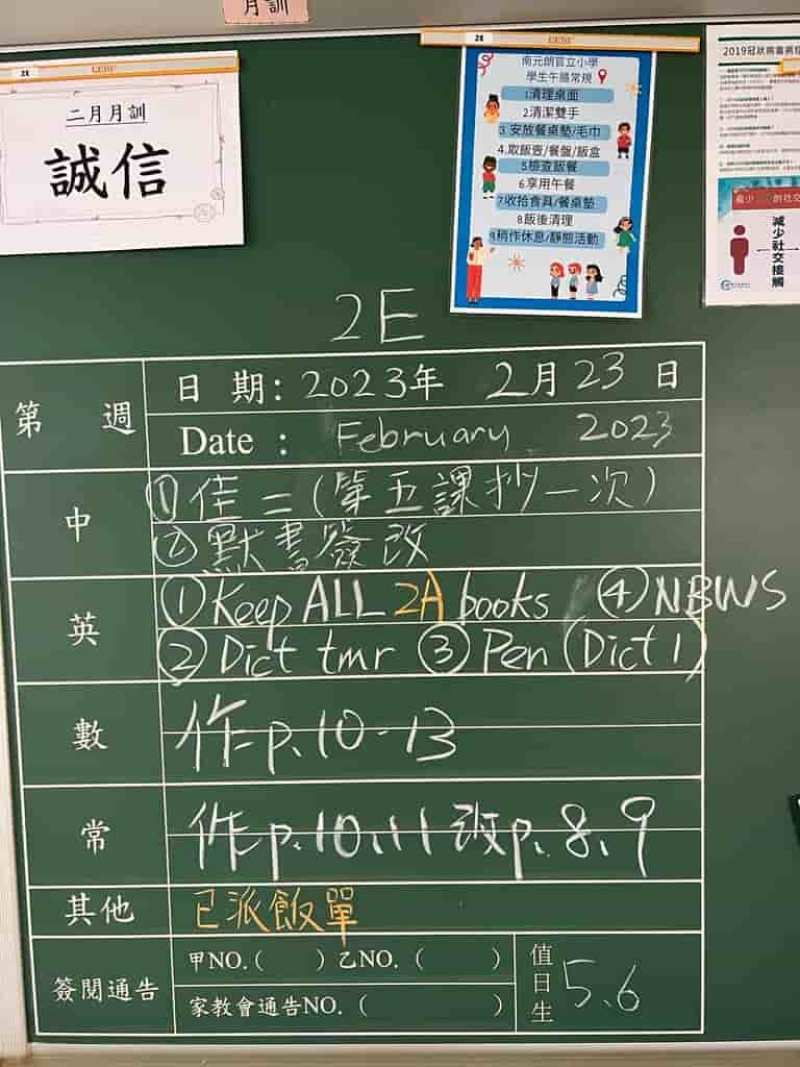 月訓
二月月訓
誠信
南元朗官立小學
學生午膳常規
1.清理桌面
2.清潔雙手
3.安放餐桌墊/毛巾
4.取飯壺/餐盤/飯盒
5.檢查飯餐
6.享用午餐
7.收拾食具/餐桌墊
8.飯後清理
9.稍作休息/靜態活動
減少社交接觸
2E
第 週
日 期：2023年 2月23日
Date : February 2023
中
①佳二（第五課抄一次）
②默書簽改
英
①Keep ALL 2A books ④NBWS
②Dict tmr ③Pen (Dict 1)
數
作p.10-13
常
作p.10、11 改p.8、9
其他
已派飯單
簽閱通告
甲NO.( ) 乙NO. ( )
家教會通告NO. ( )
值日生
5、6